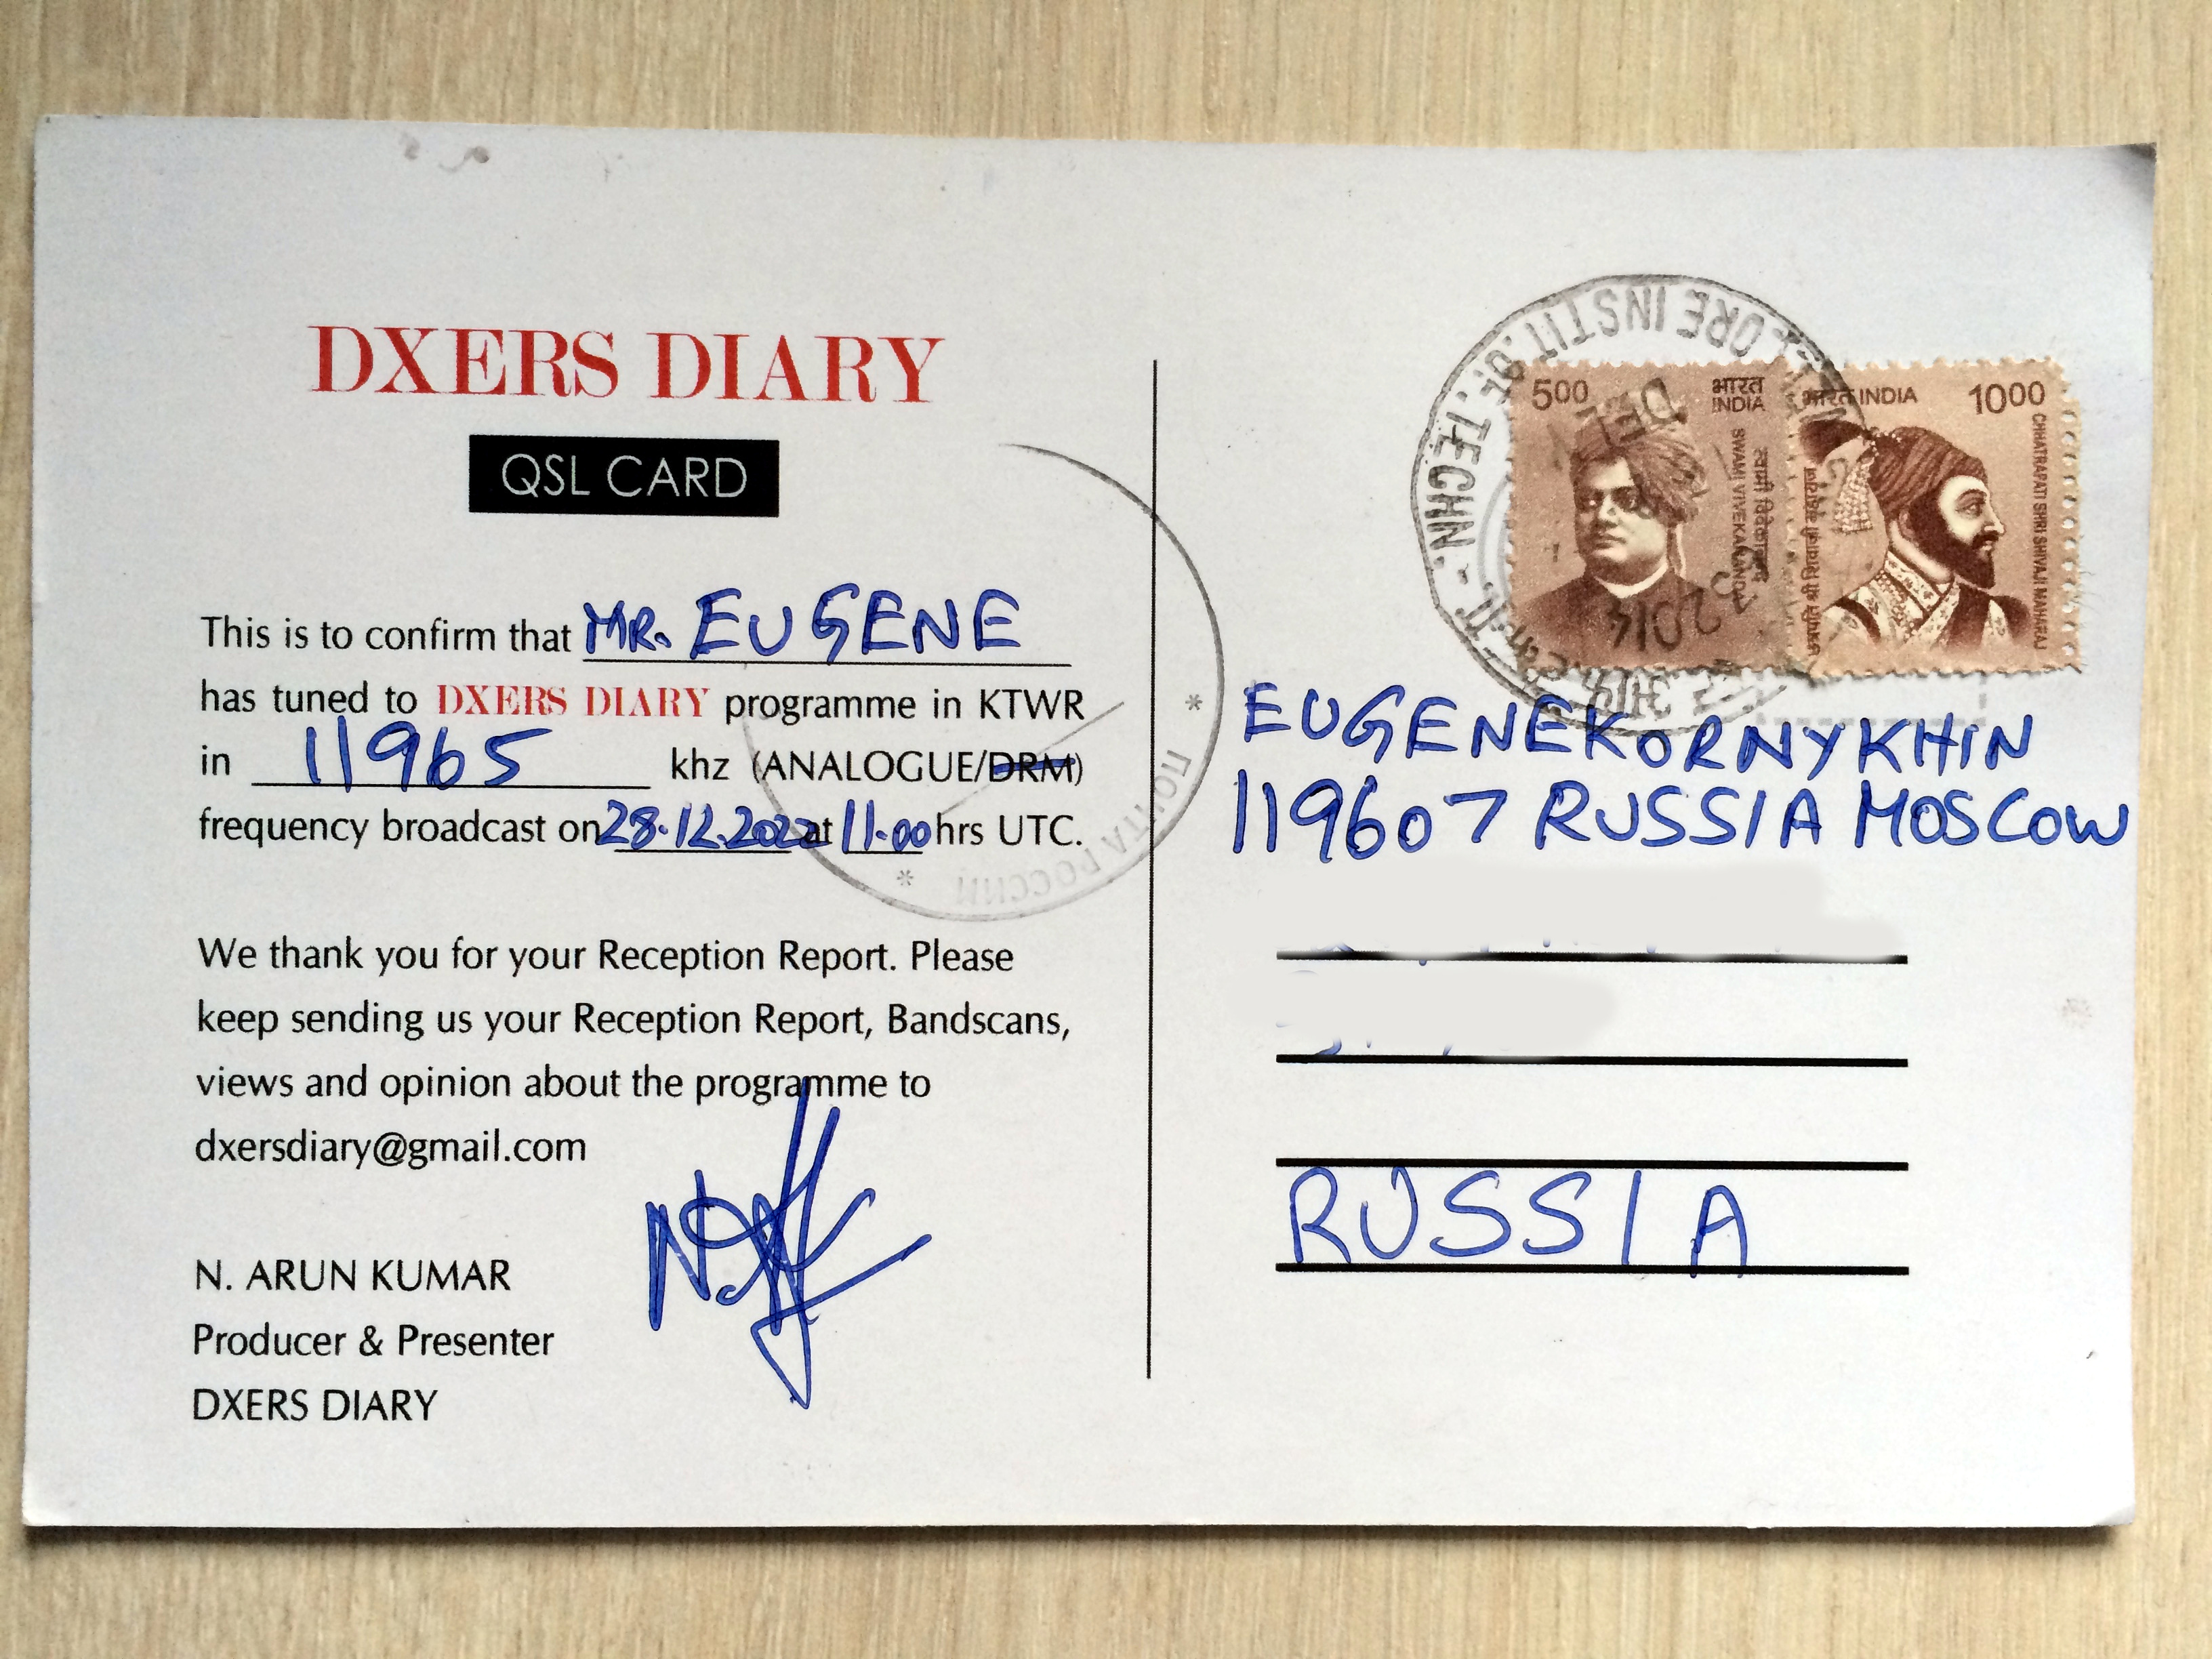 DXERS DIARY
QSL CARD
This is to confirm that MR. EUGENE
has tuned to DXERS DIARY programme in KTWR
in 11965 khz (ANALOGUE/DRM)
frequency broadcast on 28.12.2022 at 11.00 hrs UTC.
We thank you for your Reception Report. Please
keep sending us your Reception Report, Bandscans,
views and opinion about the programme to
dxersdiary@gmail.com
N. ARUN KUMAR
Producer & Presenter
DXERS DIARY
ПОЧТА РОССИИ
ORE INSTIT. OF. TECHN.
500
भारत
INDIA
स्वामी विवेकानन्द
SWAMI VIVEKANANDA
भारत INDIA
1000
CHHATRAPATI SHRI SHIVAJI MAHARAJ
EUGENE KORNYKHIN
119607 RUSSIA MOSCOW
RUSSIA